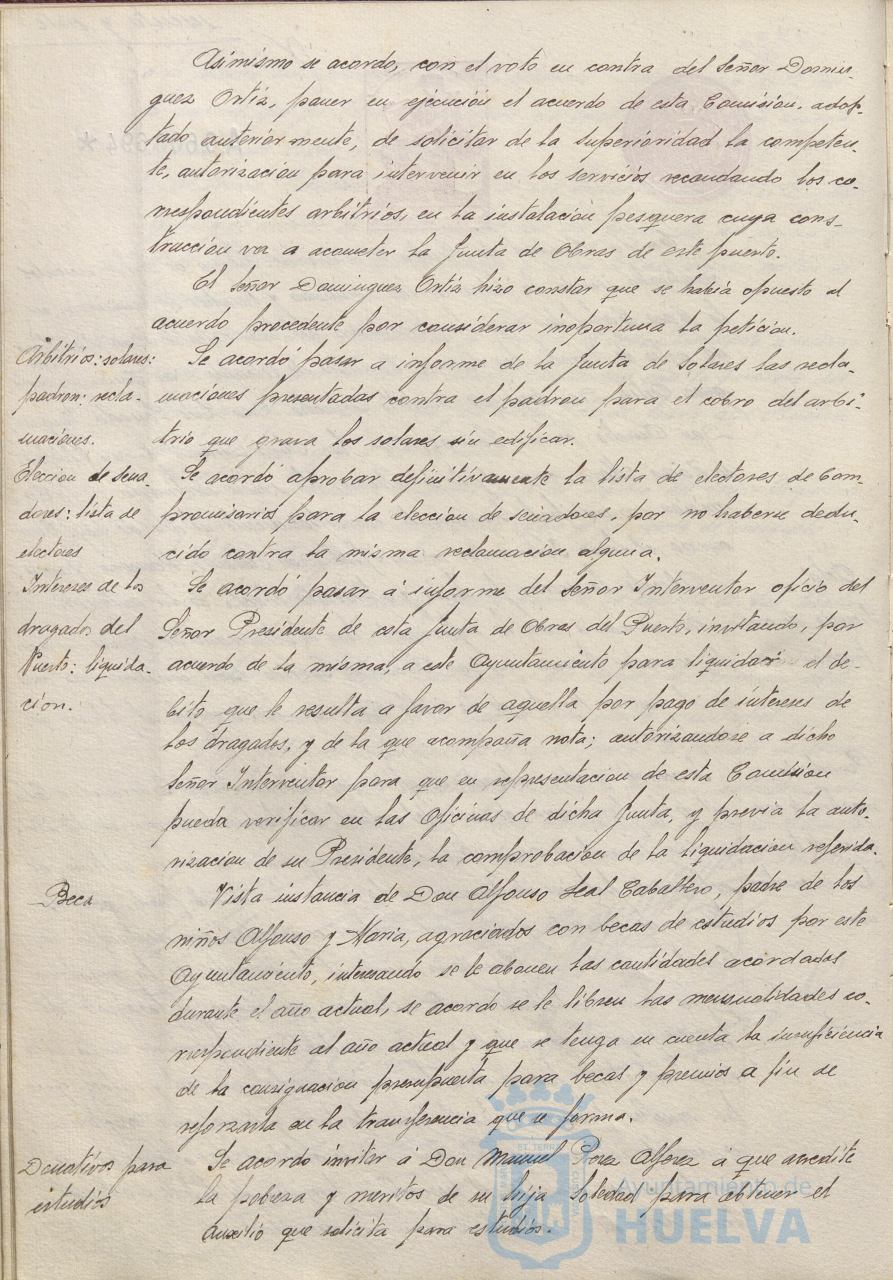 Asimismo se acordo, con el voto en contra del Señor Domin-
guez Ortiz, poner en ejecución el acuerdo de esta Comision, adop-
tado anteriormente, de solicitar de la Superioridad la competen-
te, autorizacion para intervenir en los servicios recaudando los co-
rrespondientes arbitrios, en la instalacion pesquera cuya cons-
truccion va a acometer la Junta de Obras de este puerto.
El Señor Dominguez Ortiz hizo constar que se habia opuesto al
acuerdo procedente por considerar inoportuna la peticion.
Arbitrios: solares:
padron: recla-
maciones.
Se acordó pasar a informe de la Junta de Solares las recla-
maciones presentadas contra el padron para el cobro del arbi-
trio que grava los solares sin edificar.
Eleccion de Sena-
dores: lista de
electores
Se acordó aprobar definitivamente la lista de electores de Com-
promisarios para la eleccion de senadores, por no haberse dedu-
cido contra la misma reclamacion alguna.
Intereses de los
dragados del
Puerto: liquida-
cion.
Se acordó pasar á informe del Señor Interventor oficio del
Señor Presidente de esta Junta de Obras del Puerto, invitando, por
acuerdo de la misma, a este Ayuntamiento para liquidar el de-
bito que le resulta a favor de aquella por pago de intereses de
los dragados, y de la que acompaña nota; autorizandose a dicho
Señor Interventor para que en representacion de esta Comision
pueda verificar en las Oficinas de dicha Junta, y previa la auto-
rizacion de su Presidente, la comprobacion de la liquidacion referida.
Beca
Vista instancia de Don Alfonso Leal Caballero, padre de los
niños Alfonso y Maria, agraciados con becas de estudios por este
Ayuntamiento, interesando se le abonen las cantidades acordadas
durante el año actual, se acordo se le libren las mensualidades co-
rrespondiente al año actual y que se tenga en cuenta la insuficiencia
de la consignacion presupuesta para becas y premios a fin de
reforzarla en la transferencia que se forma.
Donativos para
estudios
Se acordo invitar á Don Manuel Perez Alferez á que acredite
la pobreza y meritos de su hija Soledad para obtener el
auxilio que solicita para estudios.
Ayuntamiento de
HUELVA